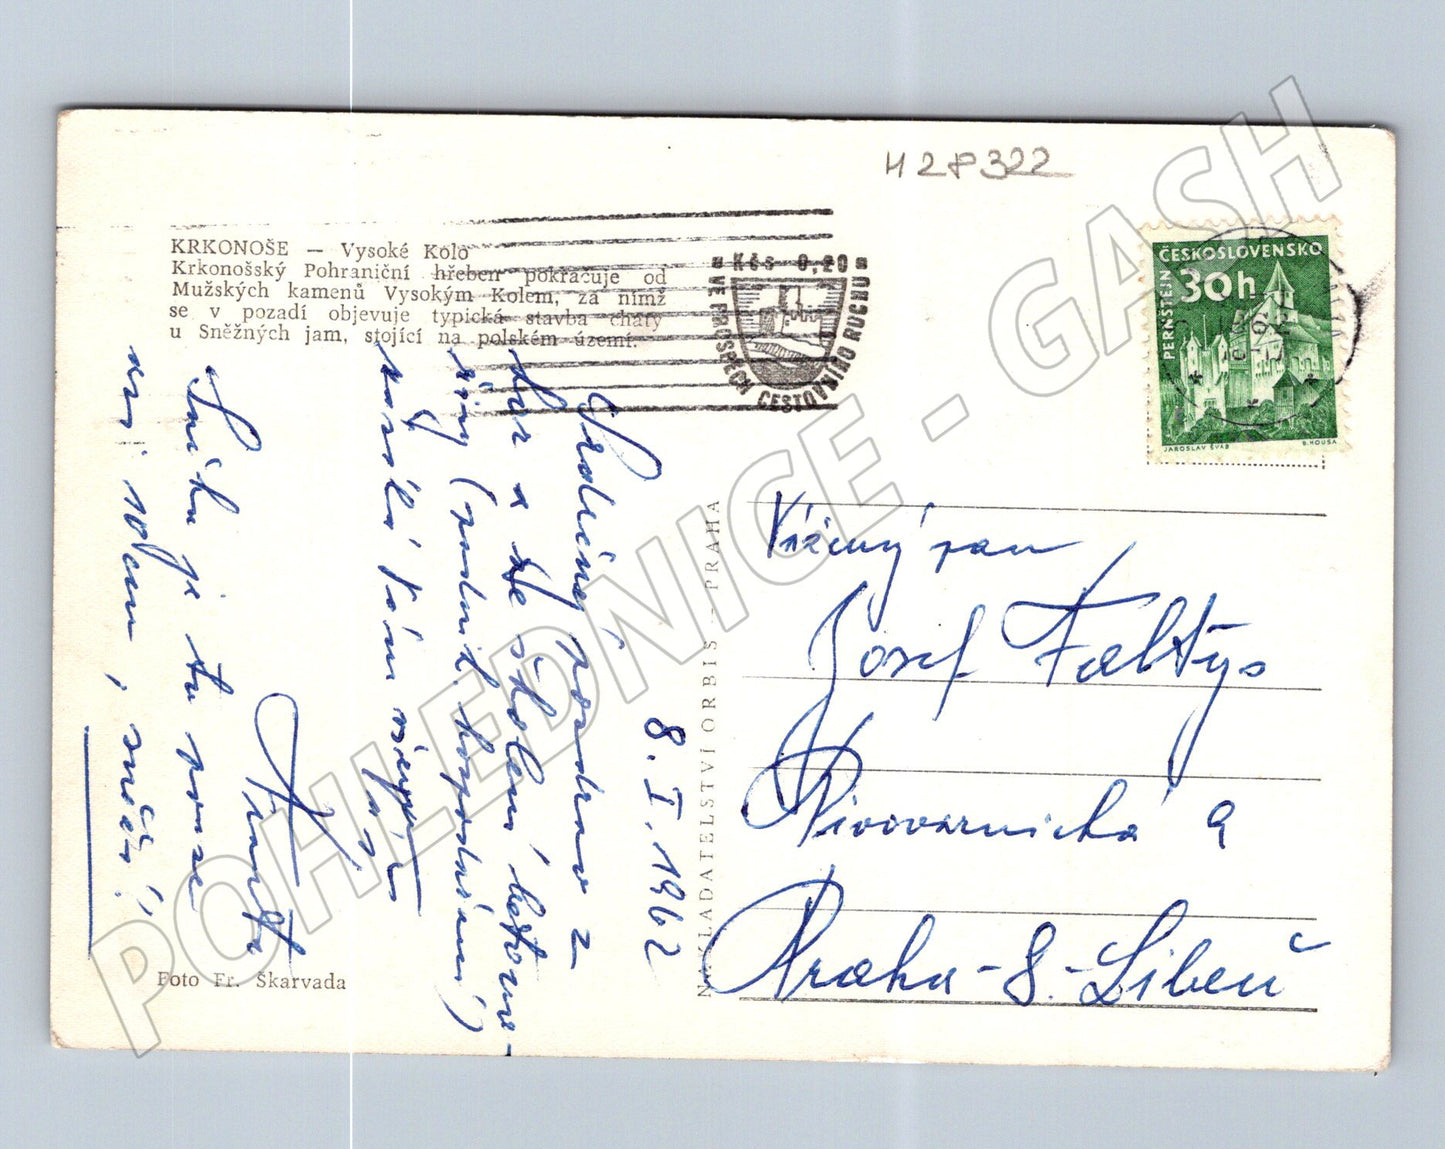 H28322
KRKONOŠE — Vysoké Kolo
Krkonošský Pohraniční hřeben pokračuje od
Mužských kamenů Vysokým Kolem, za nímž
se v pozadí objevuje typická stavba chaty
u Sněžných jam, stojící na polském území.
Kčs 0,20
VE PROSPĚCH CESTOVNÍHO RUCHU
ČESKOSLOVENSKO
30h
PERNŠTEJN
JAROSLAV ŠVÁB
B. HOUSA
8. I. 1962
Srdečný pozdrav z
hor a ze školení
(podnik. hospodaření)
posílá Vám
Sněhu je tu pouze
asi 10 cm,
Foto Fr. Škarvada
NAKLADATELSTVÍ ORBIS - PRAHA
Vážený pan
Josef Faltys
Pivovarnická 9
Praha - 8. - Libeň
POHLEDNICE - GASH